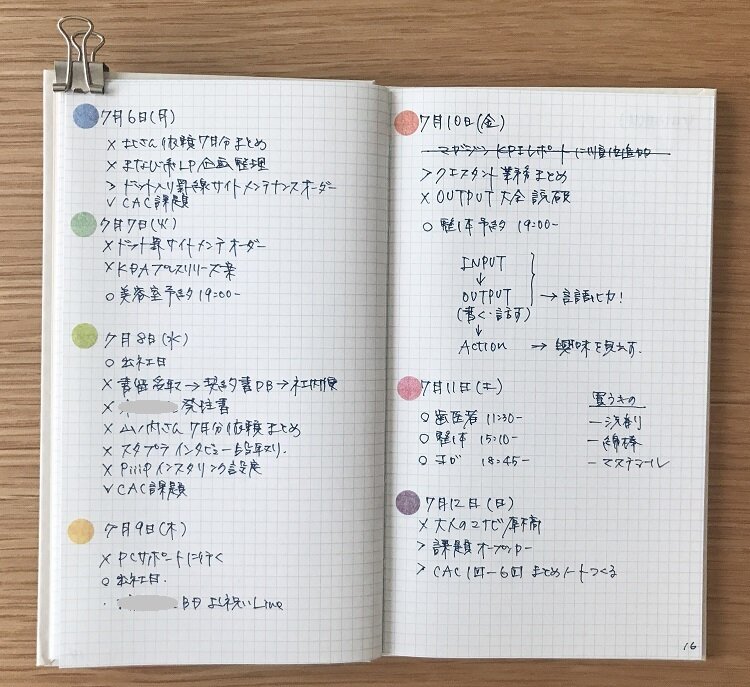 7月6日(月)
× 辻さん依頼7月分まとめ
× まなび市LP企画整理
> ドット入り罫線サイトメンテナンスオーダー
✓ CAC課題
7月7日(火)
× ドット罫サイトメンテオーダー
× KBAプレスリリース案
○ 美容室予約 19:00-
7月8日(水)
○ 出社日
× 書留受取→契約書DB→社内便
× 発注書
× 山ノ内さん 7月分依頼まとめ
× スタプラインタビュー
× Piiiφインスタリンク設定
✓ CAC課題
7月9日(木)
× PCサポートに行く
○ 出社日.
・ お祝いLine
7月10日(金)
マガジンKPIレポートに順位追加
> クエスタント業務まとめ
× OUTPUT大全 読破
○ 整体予約 19:00-
INPUT
↓
OUTPUT → 言語化力!
(書く・話す)
↓
Action → 興味を見出す.
7月11日(土)
○ 歯医者 11:30-
○ 整体 15:10-
○ ヨガ 18:45-
買うもの
- 洗剤
- 綿棒
- マスデール
7月12日(日)
× 大人のマナビ
> 課題オープンバー
> CAC1回-6回 まとめノートつくる
16